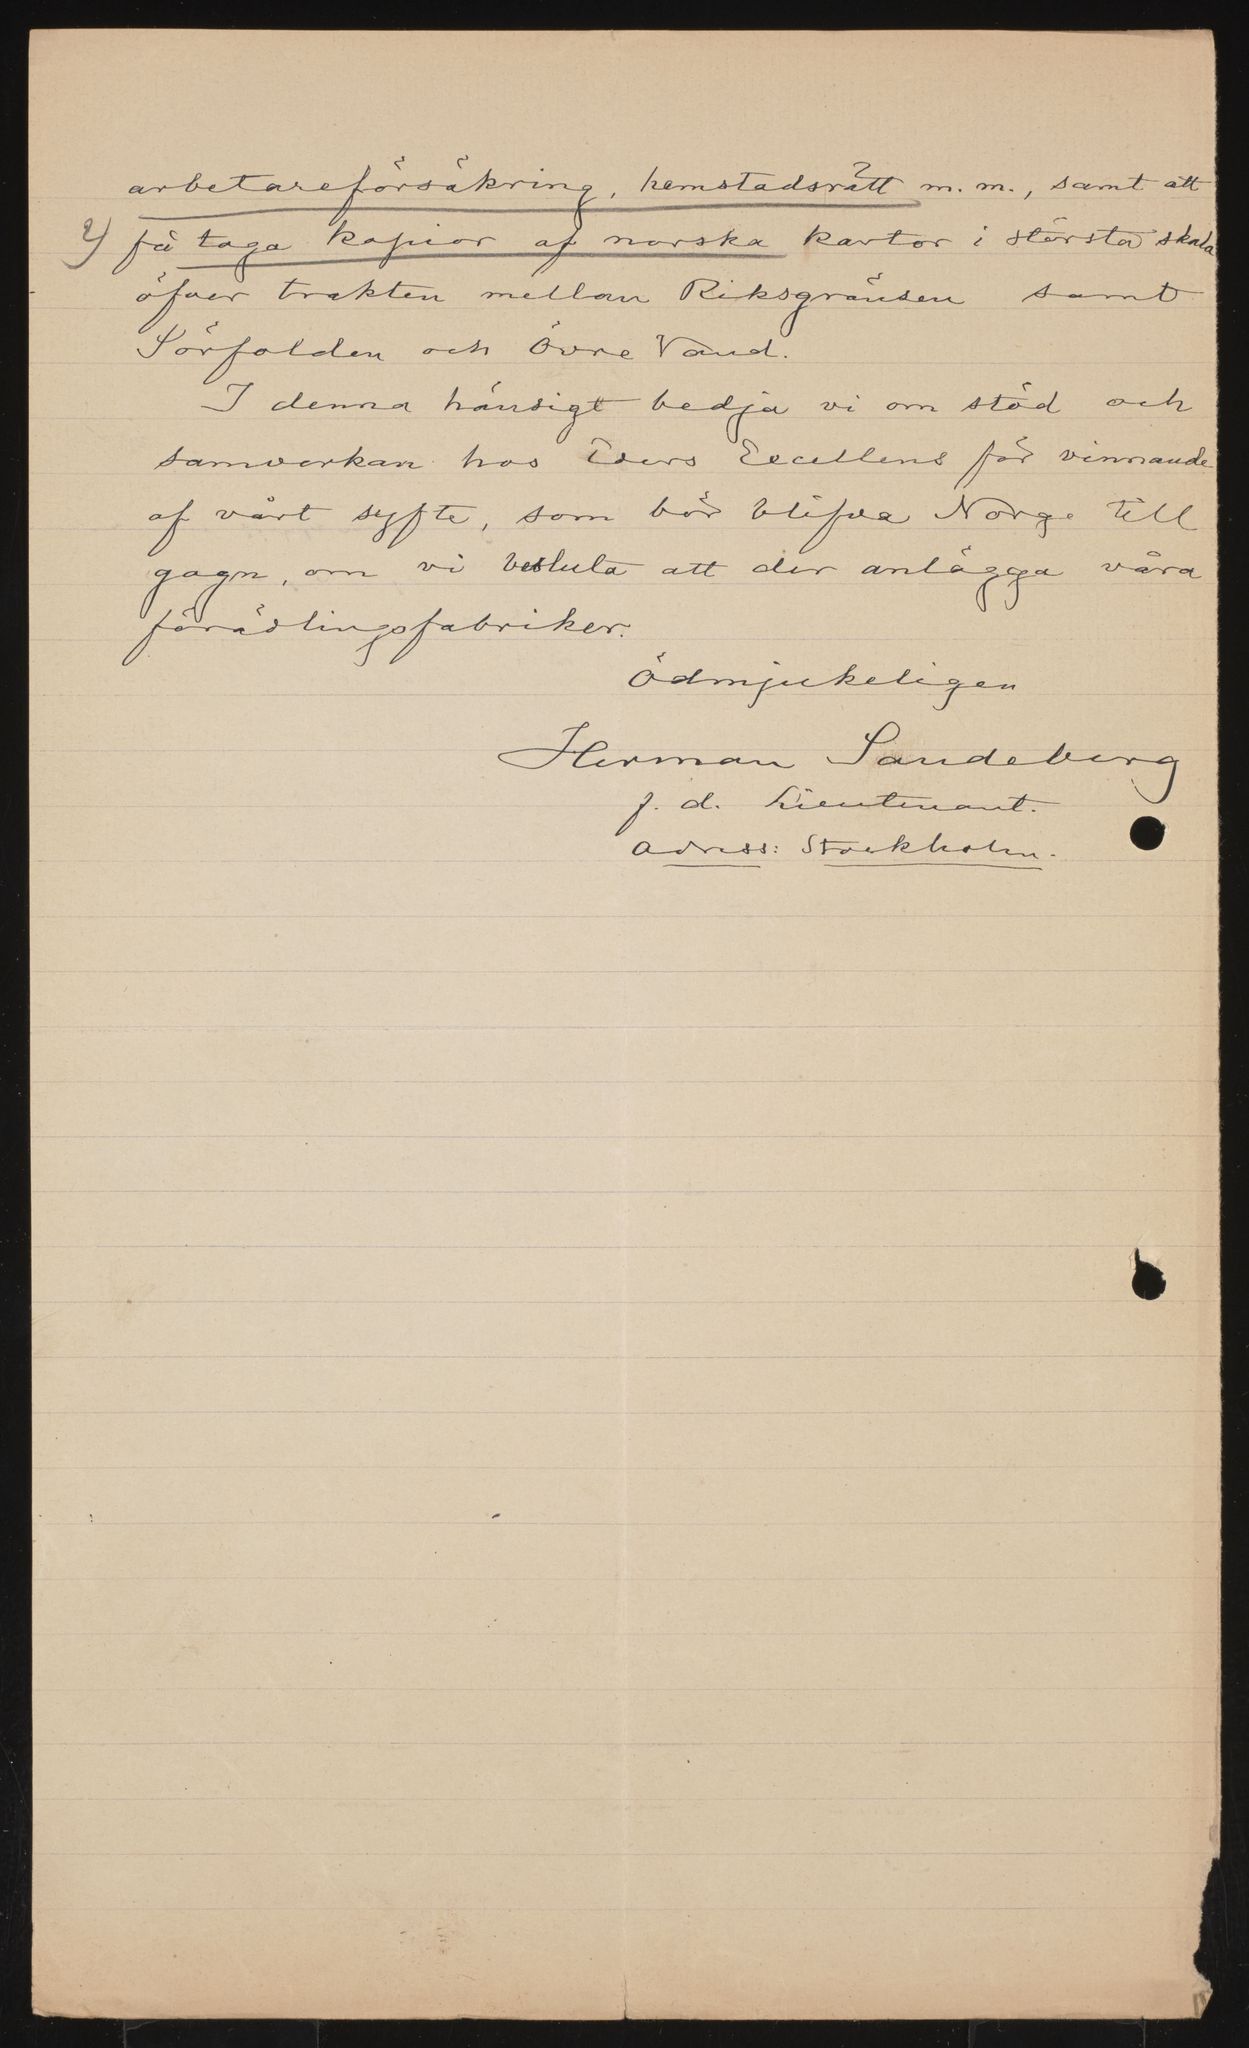 arbetareförsäkring, hemstadsrätt m. m., samt att
2) få taga kopior af norska kartor i största skala
öfver trakten mellan Riksgränsen samt
Sörfolden och Övre Vand.
I denna hänsigt bedja vi om stöd och
samverkan hos Eders Excellens för vinnande
af vårt syfte, som bör blifva Norge till
gagn, om vi besluta att der anlägga våra
förädlingsfabriker.
Ödmjukeligen
Herman Sandeberg
f. d. Lieutenant.
adress: Stockholm.